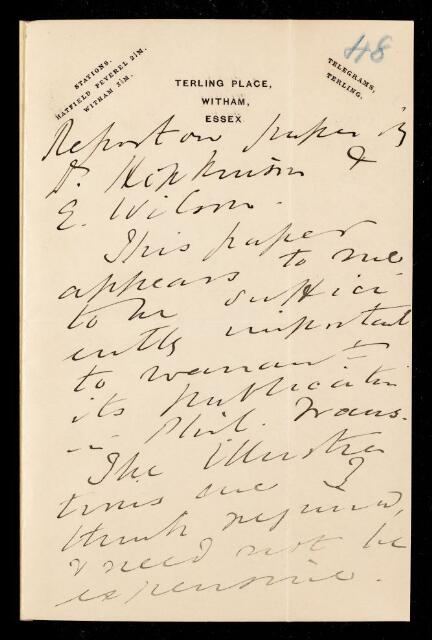 48
STATIONS.
HATFIELD PEVEREL 2½ M.
WITHAM 3½ M.
TELEGRAMS,
TERLING.
TERLING PLACE,
WITHAM,
ESSEX
Report on paper by
Dr. Hopkinson &
E. Wilson.
This paper
appears to me
to be suffici
ently important
to warrant
its publication
in Phil. Trans.
The Illustra
tions are I
think required,
& need not be
expensive.